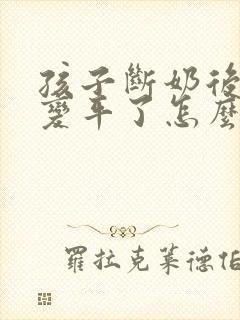 孩子斷奶後
變平了怎麼
羅拉克萊德伯